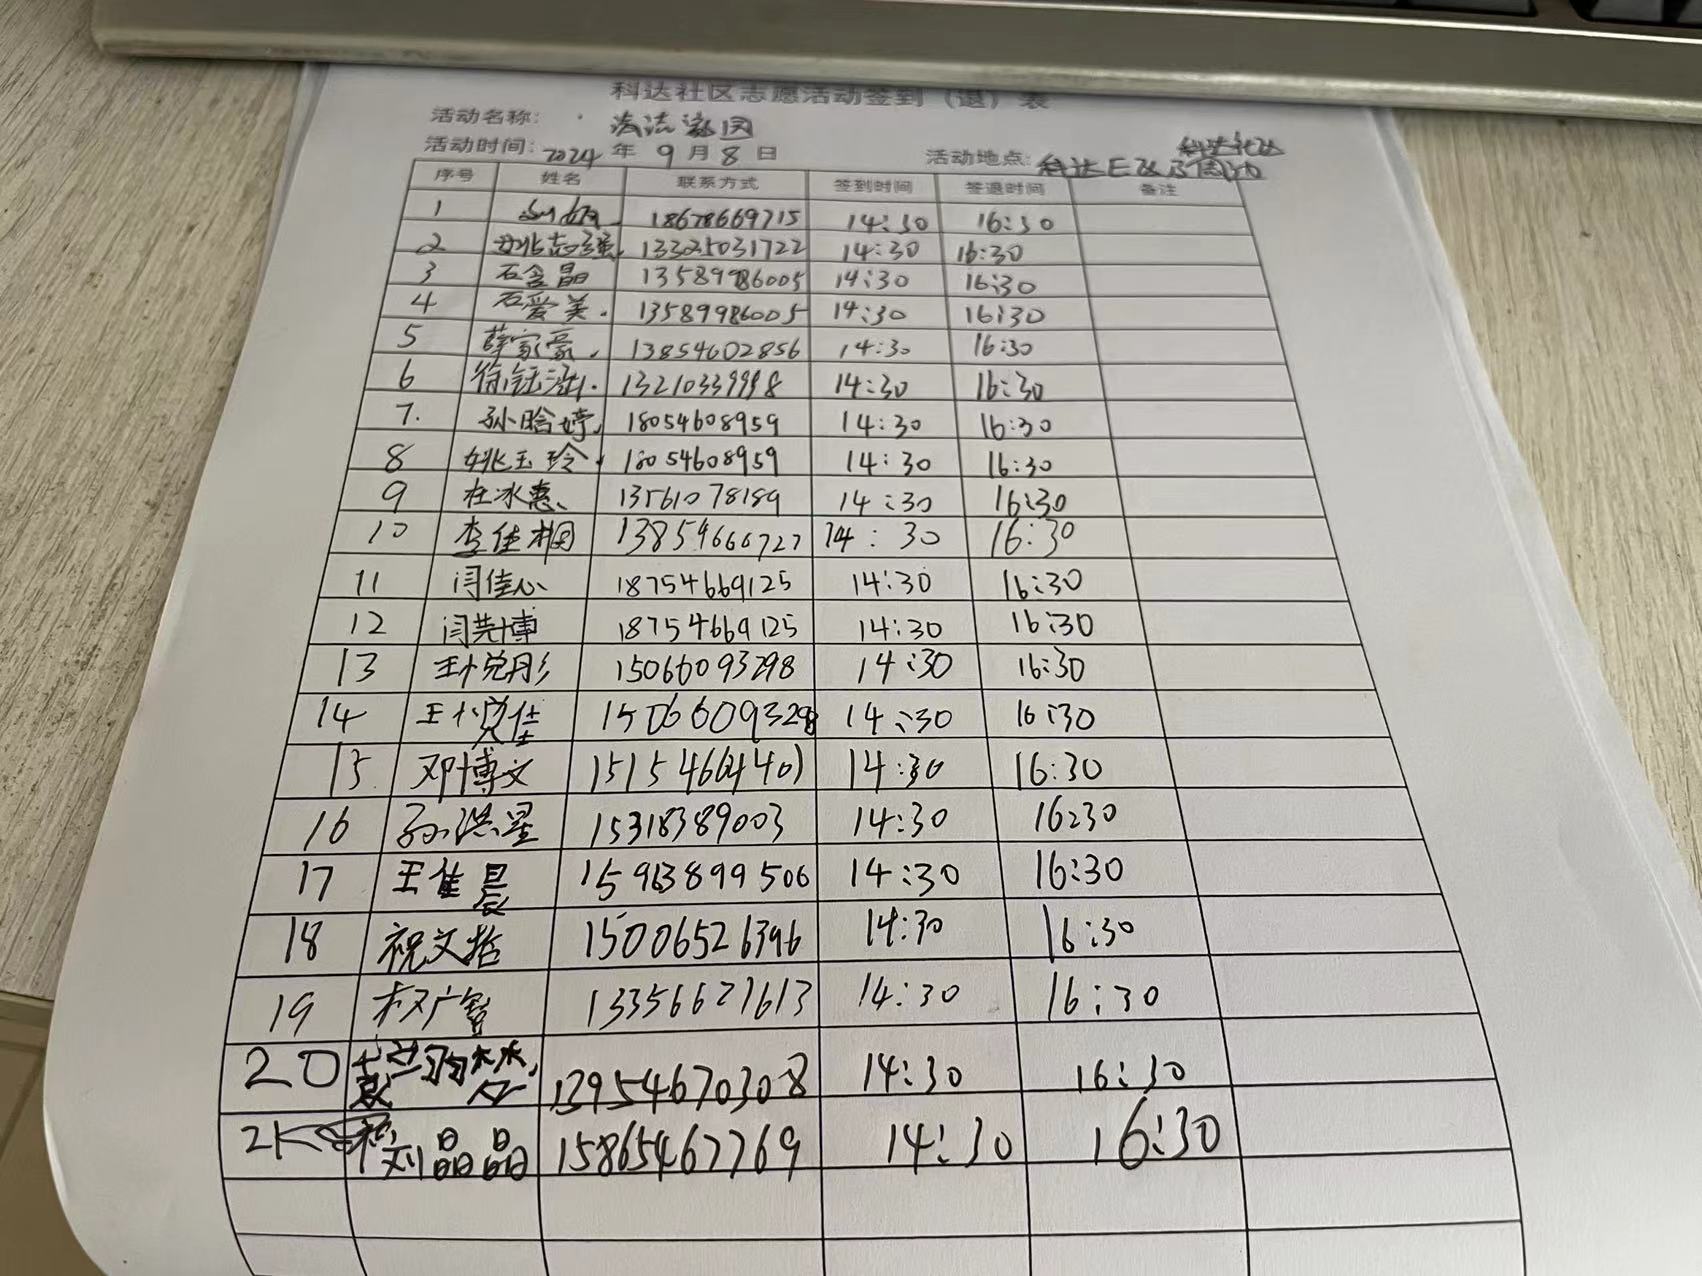 科达社区志愿活动签到（退）表
活动名称：清洁家园
活动时间：2024年9月8日 活动地点：科达E区及周边 科达社区
序号 姓名 联系方式 签到时间 签退时间 备注
1 18678669715 14:30 16:30
2 姚志强 13325031722 14:30 16:30
3 石含晶 13589986005 14:30 16:30
4 石爱美 13589986005 14:30 16:30
5 薛家豪 13854602856 14:30 16:30
6 徐钰涵 13210339998 14:30 16:30
7 孙晗婷 18054608959 14:30 16:30
8 姚玉玲 18054608959 14:30 16:30
9 杜冰惠 13561078189 14:30 16:30
10 李佳桐 13854666727 14:30 16:30
11 闫佳心 18754669125 14:30 16:30
12 闫芫博 18754669125 14:30 16:30
13 王悦彤 15066093298 14:30 16:30
14 王悦佳 15066093298 14:30 16:30
15 邓博文 15154664401 14:30 16:30
16 孙洪星 15318389003 14:30 16:30
17 王隹晨 14:30 16:30
18 祝文哲 15006526396 14:30 16:30
19 权广 13356627613 14:30 16:30
20 13954670308 14:30 16:30
21 程刘晶晶 15865467769 14:30 16:30